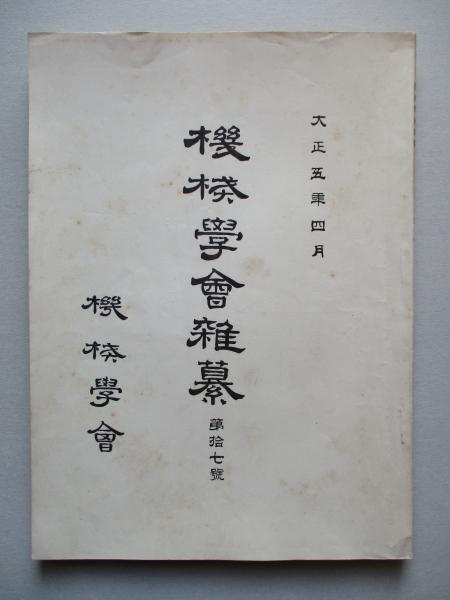 大正五年四月
機械學會雜纂 第拾七號
機械學會